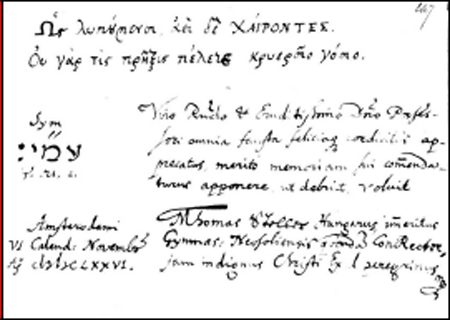 247
Ὡς λυπούμενοι, ἀεὶ δὲ ΧΑΙΡΟΝΤΕΣ.
Οὐ γάρ τις πρῆξις πέλεται κρυεροῖο γόοιο.
Sym
עמי:
Ψ. 121. 2.
Viro Rndo & Eruditissimo Dno Profes-
sori omnia fausta felicia ap-
precatus, merito memoriam sui comenda-
turus apponere, ut debuit, voluit
Amsterodami
VI Calend: Novembr
Aõ CLXXVI.
Thomas Steller Hungarus imeritus
Gymnas: Neosoliensis ConRector,
jam indignus Christi Exul peregrinus